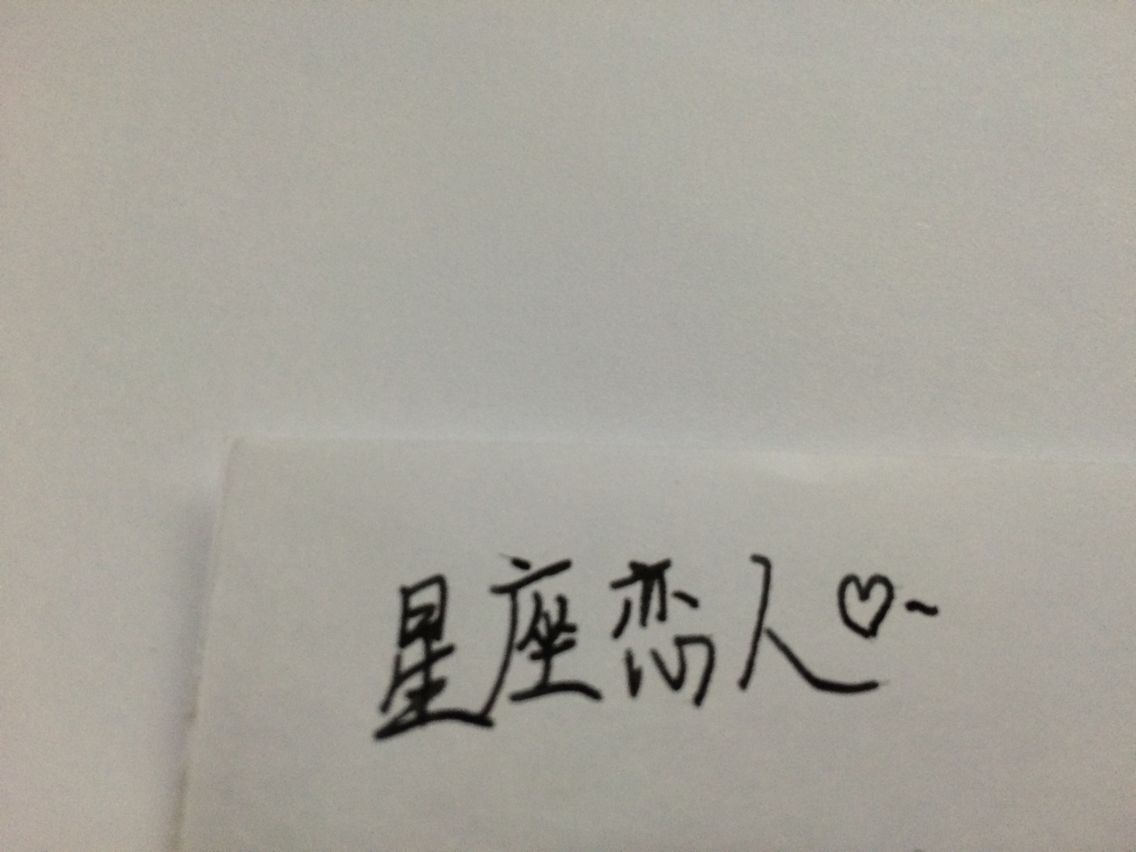 星座恋人♡~